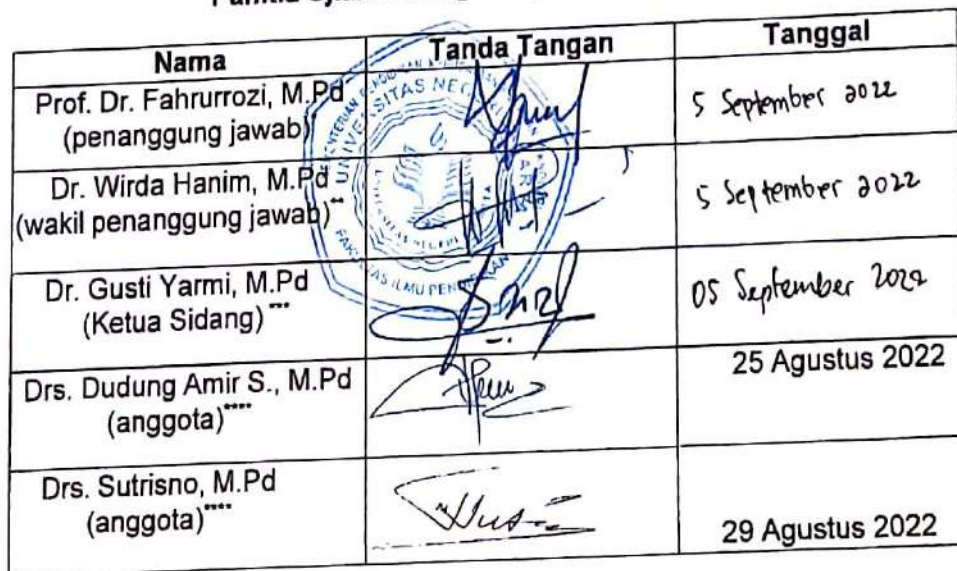 Nama Tanda Tangan Tanggal
Prof. Dr. Fahrurrozi, M.Pd
(penanggung jawab)
5 September 2022
Dr. Wirda Hanim, M.Pd
(wakil penanggung jawab)**
5 September 2022
Dr. Gusti Yarmi, M.Pd
(Ketua Sidang)***
05 September 2022
Drs. Dudung Amir S., M.Pd
(anggota)****
25 Agustus 2022
Drs. Sutrisno, M.Pd
(anggota)****
29 Agustus 2022
UNIVERSITAS NEGERI
FAKULTAS ILMU PENDIDIKAN